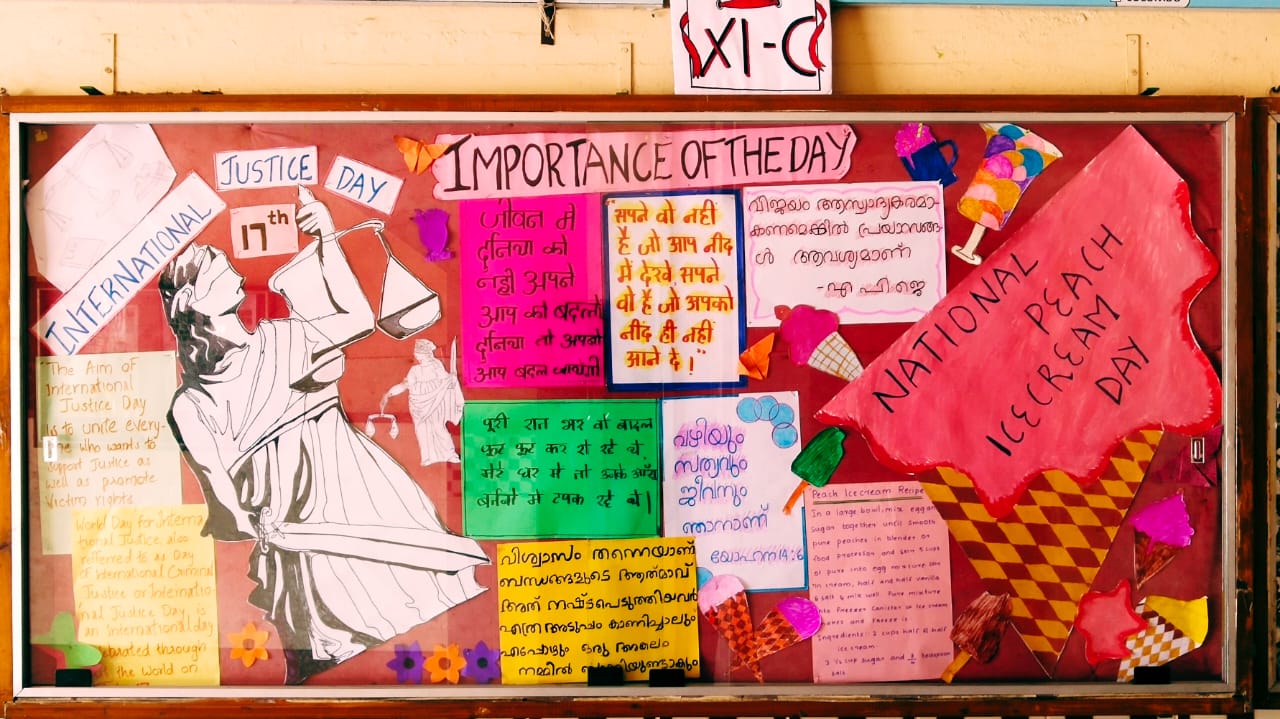 XI-C
IMPORTANCE OF THE DAY
INTERNATIONAL
JUSTICE
DAY
17th
The Aim of
International
Justice Day
is to unite every-
who wants to
support Justice as
well as promote
Victim rights.
World Day for Interna
tional Justice, also
referred to as Day
of International Criminal
Justice or Internatio-
nal Justice Day, is
an International day
through
the World on
जीवन मे
दुनिया को
नही अपने
आप को बदलो
दुनिया तो अपने
आप बदल जायेगी
"सपने वो नहीं
है जो आप नीद
में देखे सपने
वो है जो आपको
नीद ही नहीं
आने दे !"
വിജയം ആസ്വാദ്യകരമാ-
കണമെങ്കിൽ പ്രയാസങ്ങ-
ൾ ആവശ്യമാണ്
-എ പി ജെ
पूरी रात भर वो बादल
फूट फूट कर रो रहे थे,
मेरे घर मे तो उनके आँसू
बर्तनों मे टपक रहे थे |
വഴിയും
സത്യവും
ജീവനും
ഞാനാണ്
യോഹന്നാ 14:6
വിശ്വാസം തന്നെയാണ്
ബന്ധങ്ങളുടെ ആത്മാവ്
അത് നഷ്ടപെടുത്തിയവർ
എത്ര അടുപ്പം കാണിച്ചാലും
എപ്പോഴും ഒരു അകലം
നമ്മിൽ
NATIONAL
PEACH
ICECREAM
DAY
Peach Icecream Recipe
In a large bowl, mix egg an
sugar together until smooth
pure peaches in blender or
food processor and 5 cups
of pure into egg mixture
in cream, half and half vanilla
& salt & mix well. Pure mixture
into freezer canister of ice cream
and freeze
Ingredients: 2 cups half & half
ice cream
2 ½ cup sugar and ½
salt